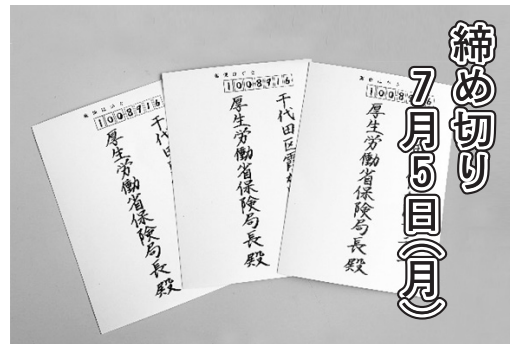 締め切り
7月5日（月）
1008916
千代田区霞
厚生労働省保険局長殿
1008916
千代田区霞
厚生労働省保険局長殿
1008916
厚生労働省保険局長殿